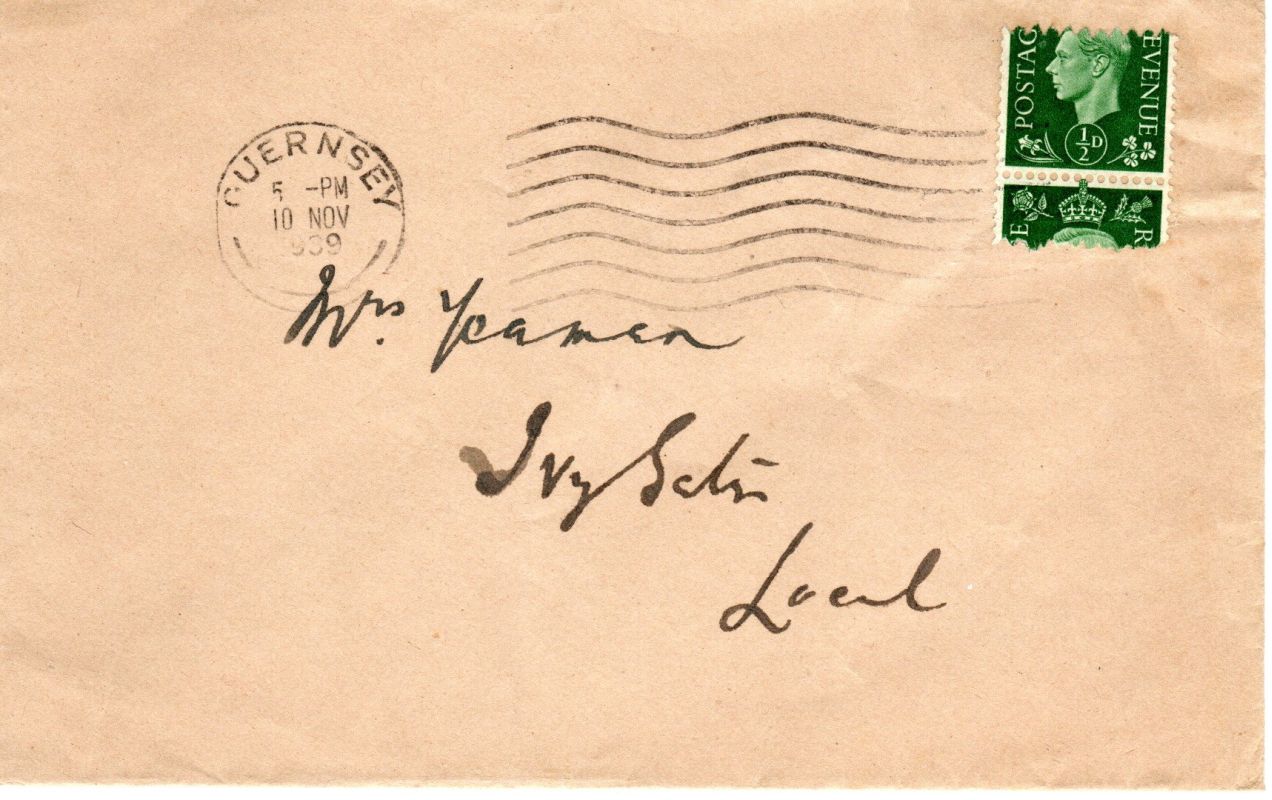 GUERNSEY
5 -PM
10 NOV
939
POSTAG
EVENUE
½D
E
R
Mrs. Yeaman
Ivy Gates
Local